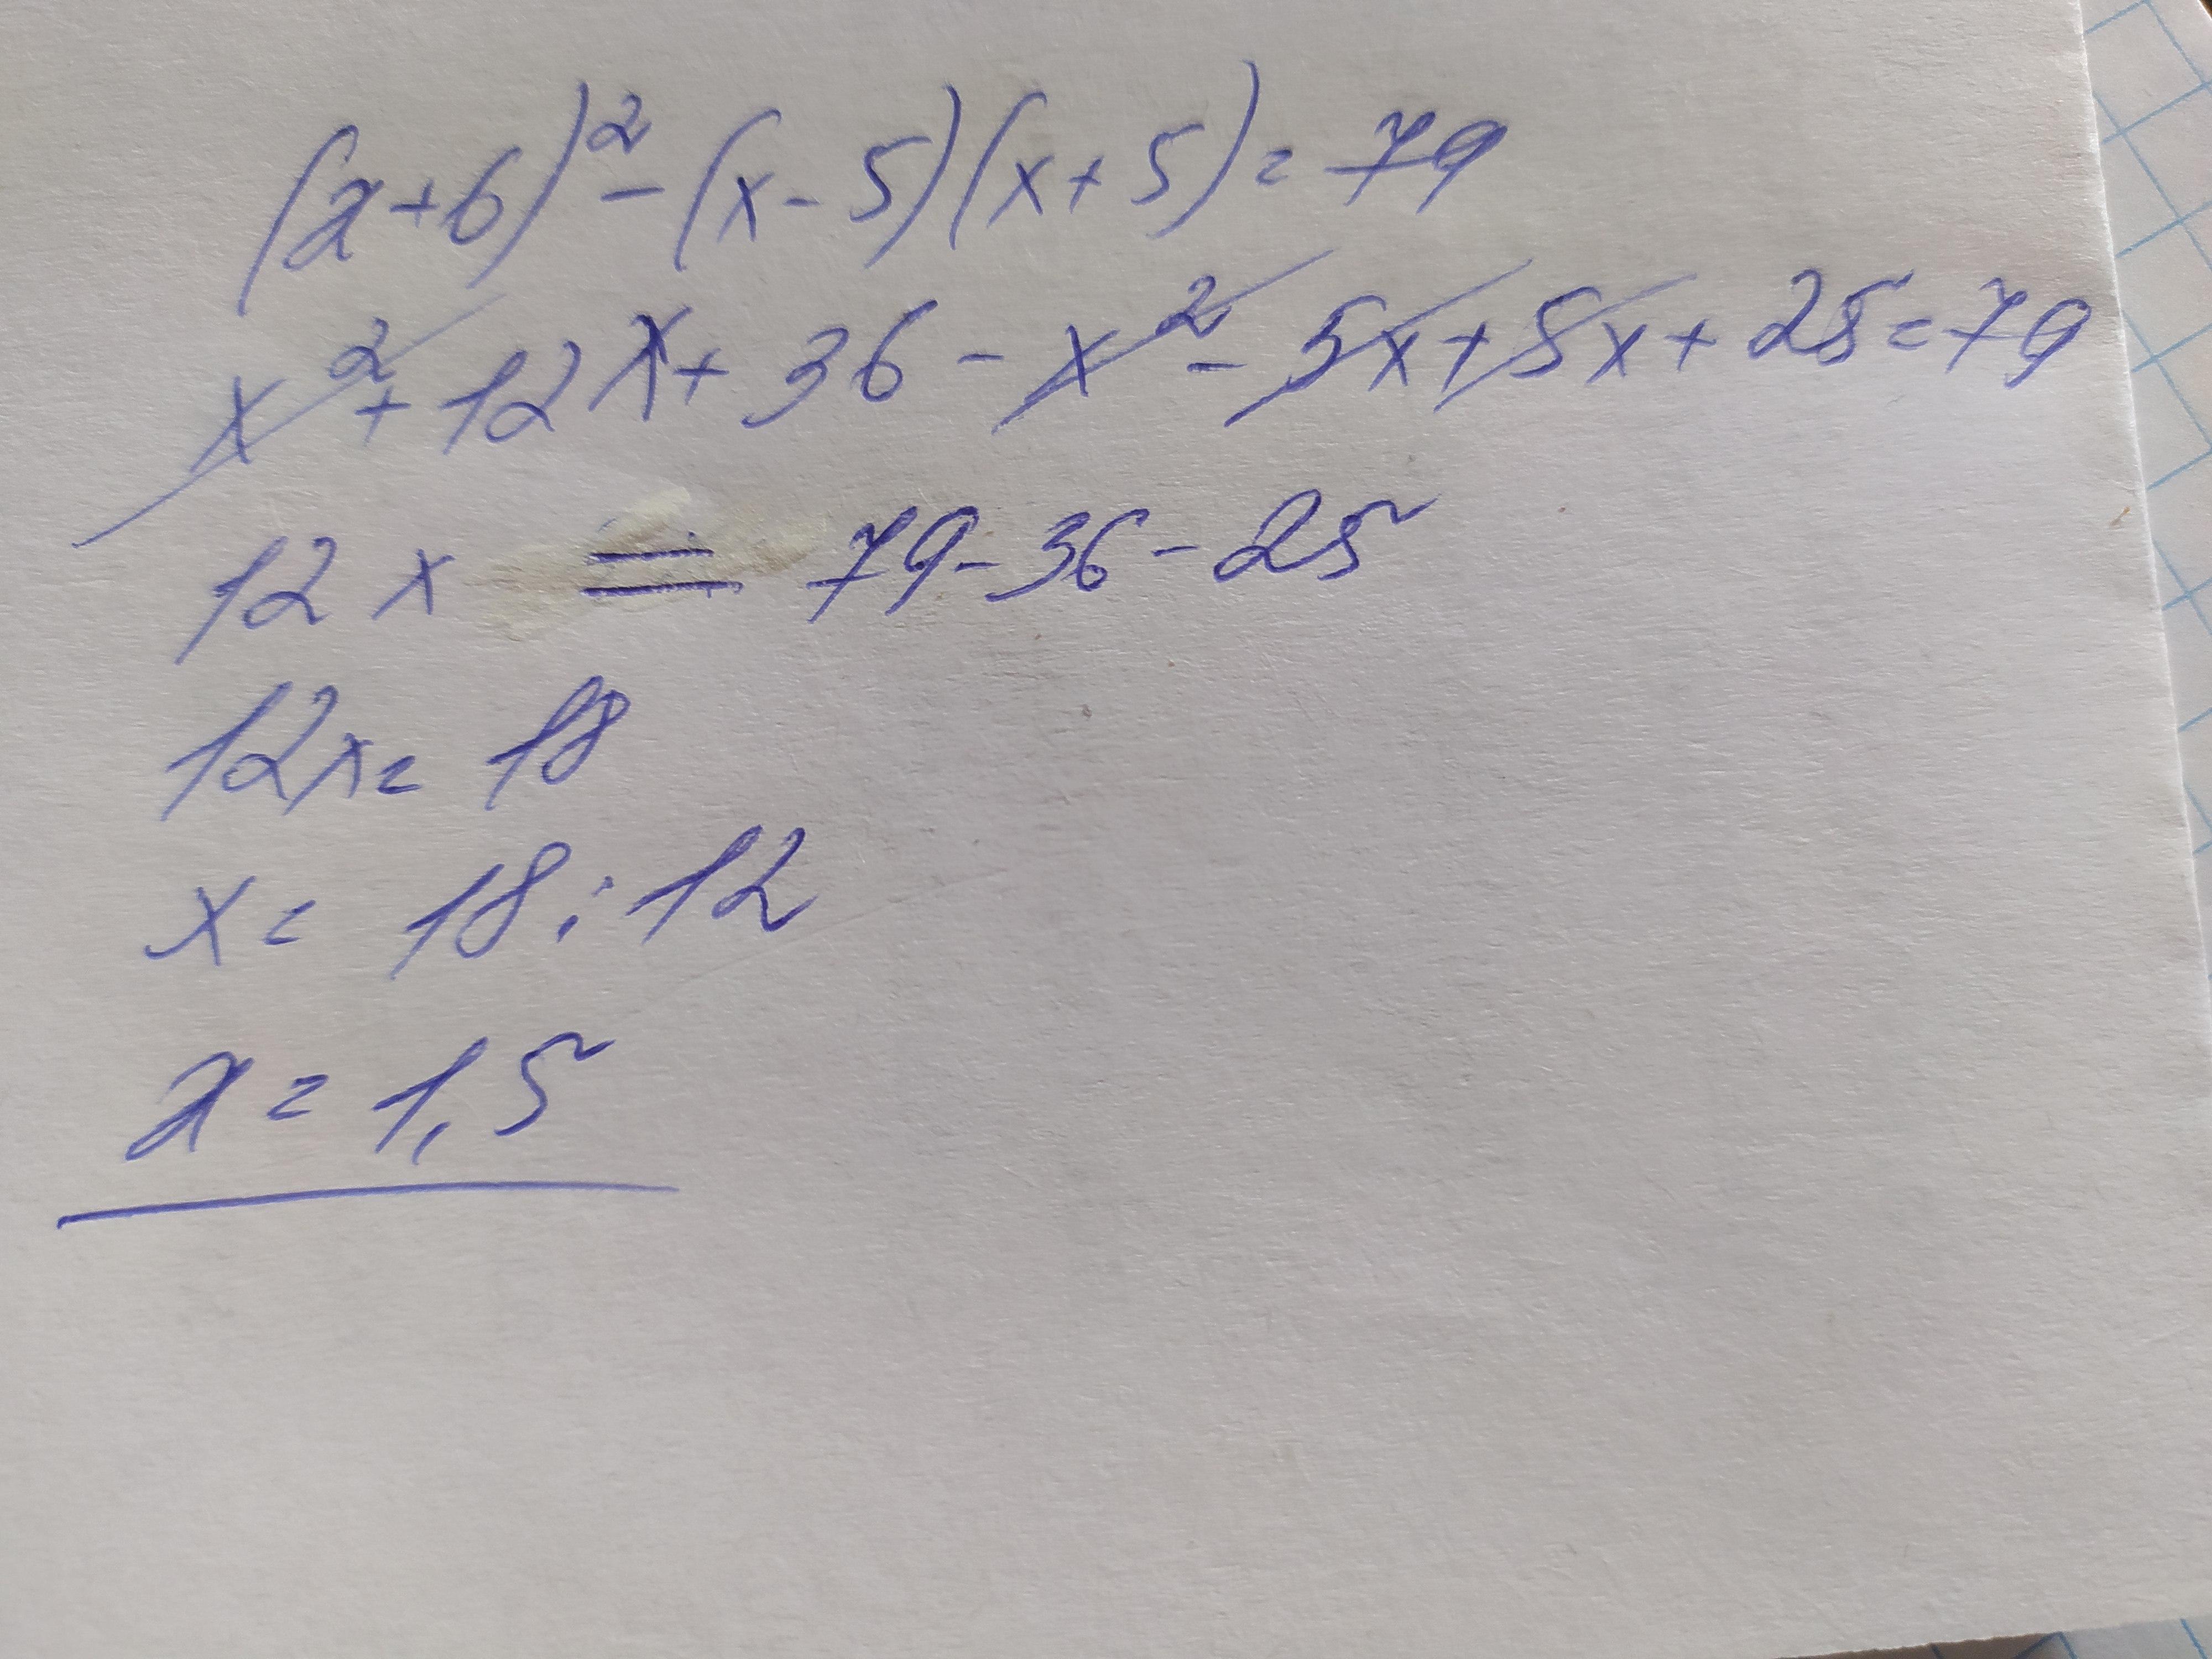 (x+6)² - (x-5)(x+5) = 79
x² + 12x + 36 - x² - 5x + 5x + 25 = 79
12x = 79 - 36 - 25
12x = 18
x = 18 : 12
x = 1,5